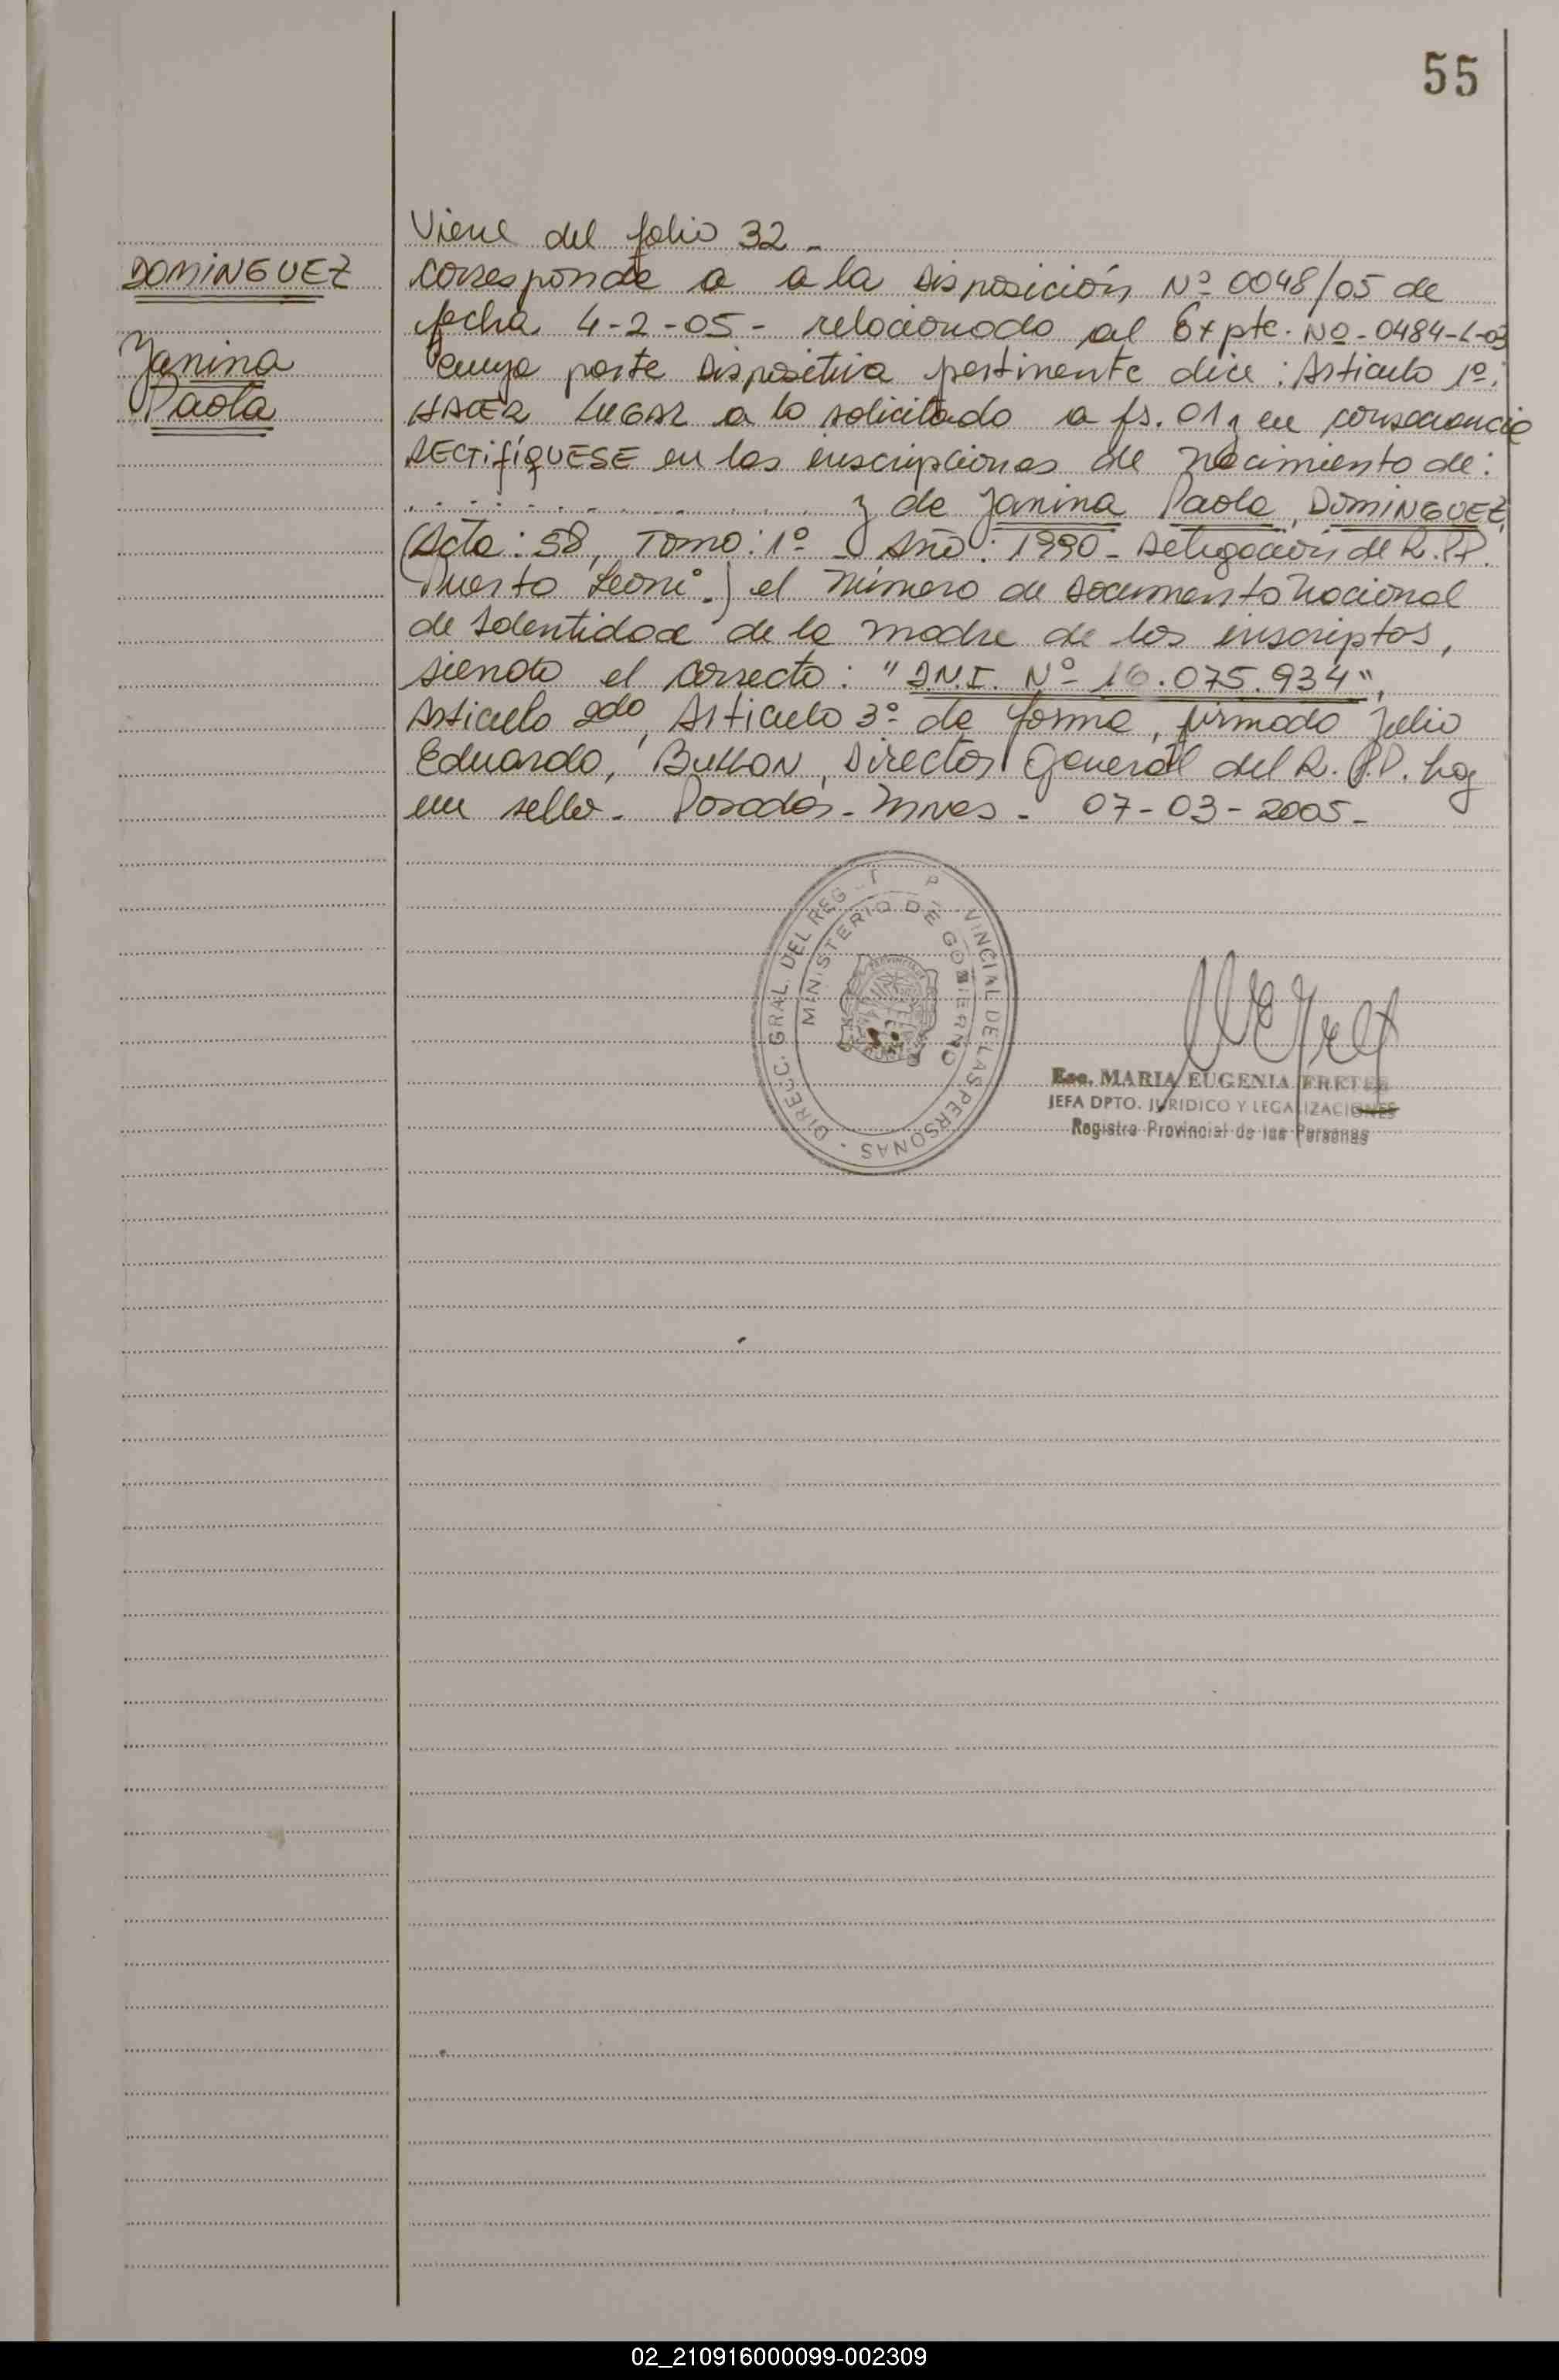 55
Viene del folio 32 -
DOMINGUEZ
Janina
Paola
Corresponde a a la Disposición Nº 0048/05 de
fecha 4-2-05- relacionado al Expte. Nº-0484-L-03
cuya parte Dispositiva pertinente dice: Articulo 1º:
HACER LUGAR a lo solicitado a fs. 01 y en consecuencia
RECTIFÍQUESE en las inscripciones de nacimiento de:
.......................... y de Janina Paola, DOMINGUEZ,
(Acta: 58, Tomo: 1º - Año: 1990 - Delegación de R.P.P.
Puerto Leoni.) el número de Documento Nacional
de Identidad de la madre de los inscriptos,
siendo el correcto: "D.N.I. Nº 16.075.934",
Articulo 2do, Articulo 3º de forma, firmado Julio
Eduardo, Director General del R.P.P. hay
un sello - Posadas - Mnes - 07-03-2005-
DIRECC. GRAL. DEL REG VINCIAL DE LAS PERSONAS
MINISTERIO DE GOBIERNO
Esc. MARIA EUGENIA FRETES
JEFA DPTO. JURIDICO Y LEGALIZACIONES
Registro Provincial de las Personas
02_210916000099-002309